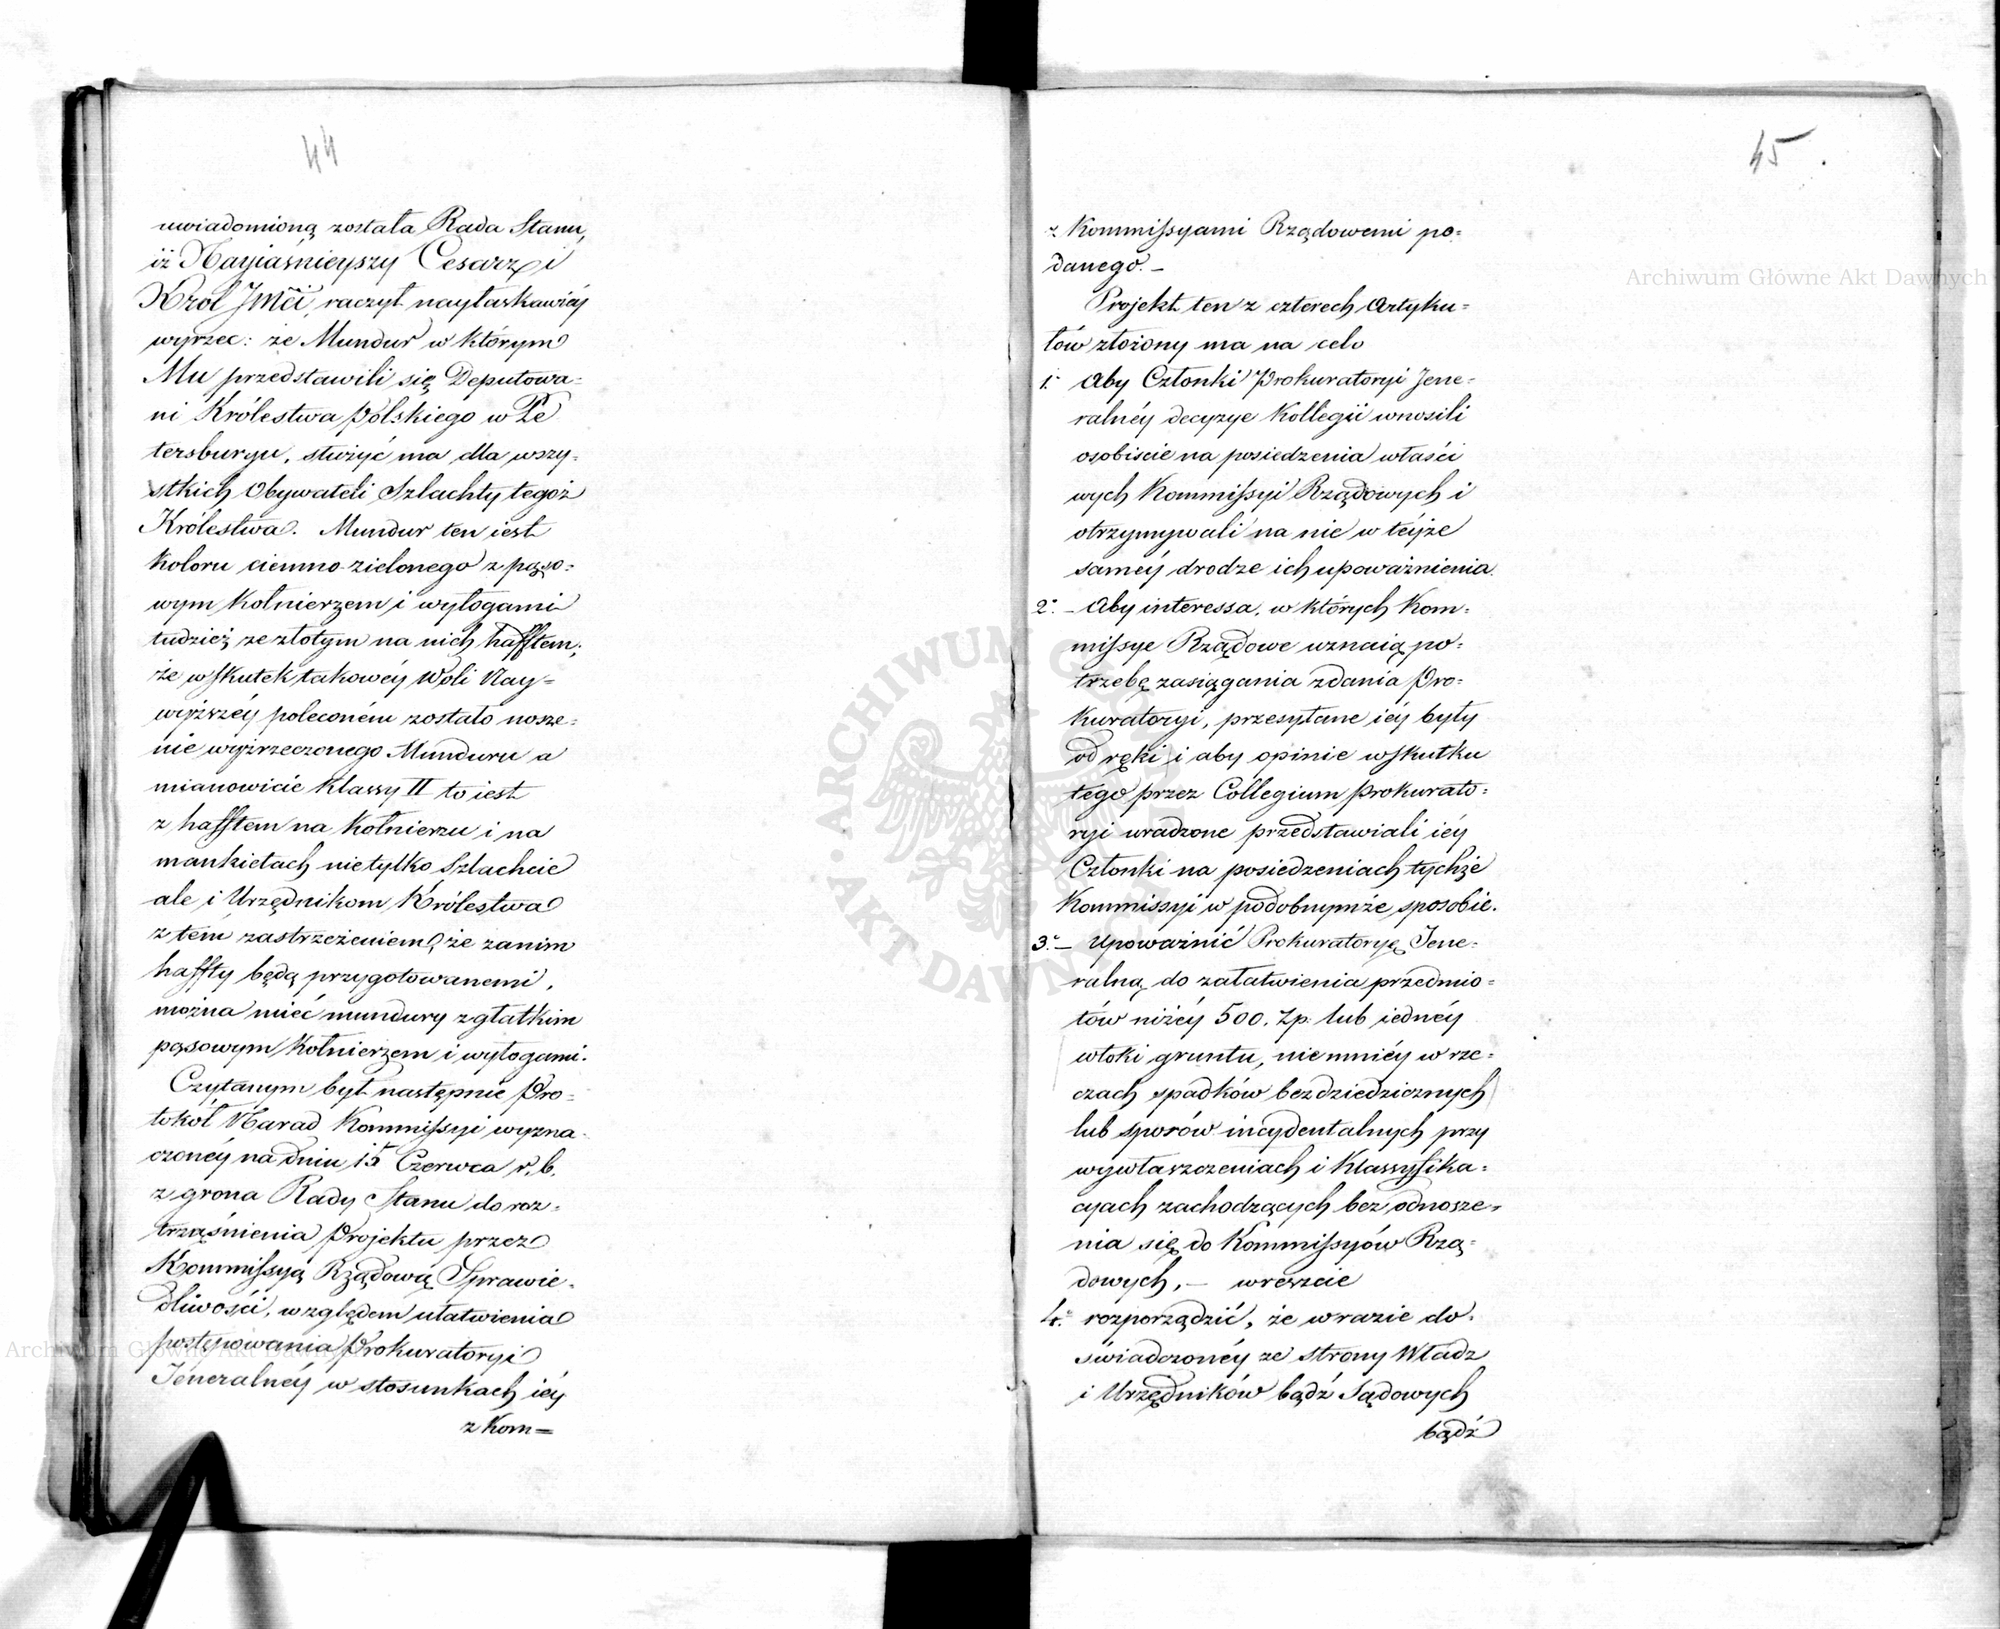 44
uwiadomioną została Rada Stanu,
iż Nayiaśnieyszy Cesarz i
Król Jmći, raczył nayłaskawiéy
wyrzec: że Mundur w którym
Mu przedstawili się Deputowa=
ni Królestwa Polskiego w Pe
tersburgu, służyć ma dla wszy=
stkich Obywateli Szlachty tegoż
Królestwa. Mundur ten iest
koloru ciemno-zielonego z pąso=
wym kołnierzem i wyłogami
tudzież ze złotym na nich hafftem;
że wskutek takowéy Woli Nay=
wyższéy poleconém zostało nosze=
nie wyżrzeczonego Munduru a
mianowicie klassy II to iest
z hafftem na kołnierzu i na
mankietach nietylko Szlachcie
ale i Urzędnikom Królestwa
z tém zastrzeżeniem, że zanim
haffty będą przygotowanemi,
można mieć mundury z gładkim
pąsowym kołnierzem i wyłogami.
Czytanym był następnie Pro=
tokół Narad Kommissyi wyzna=
czonéy na dniu 15 Czerwca r. b.
z grona Rady Stanu do roz=
trząśnienia Projektu przez
Kommissyą Rządową Sprawie=
dliwości, względem ułatwienia
postępowania Prokuratoryi
Jeneralnéy w stosunkach iéy
z Kom=
45.
z Kommissyami Rządowemi po=
danego. –
Projekt ten z czterech Artyku=
łów złożony ma na celu
1. Aby Członki Prokuratoryi Jene=
ralnéy decyzye Kollegii wnosili
osobiście na posiedzenia właści
wych Kommissyi Rządowych i
otrzymywali na nie w téyże
saméy drodze ich upoważnienia.
2. – Aby interessa, w których Kom=
missye Rządowe uznaią po=
trzebę zasiągania zdania Pro=
kuratoryi, przesyłane iéy były
od ręki i aby opinie wskutku
tego przez Collegium Prokurato=
ryi uradzone przedstawiali iéy
Członki na posiedzeniach tychże
Kommissyi w podobnymże sposobie.
3. – Upoważnić Prokuratoryę Jene=
ralną do załatwienia przedmio=
tów niżéy 500. Zp. lub iednéy
włoki gruntu, niemniéy w rze=
czach spadków bezdziedzicznych
lub sporów incydentalnych przy
wywłaszczeniach i klassyfika=
cyach zachodzących bez odnosze=
nia się do Kommissyów Rzą=
dowych, – wreszcie
4. rozporządzić, że w razie do=
świadczonéy ze strony Władz
i Urzędników bądź Sądowych
bądź
Archiwum Główne Akt Dawnych
Archiwum Główne Akt Dawnych
ARCHIWUM GŁÓWNE AKT DAWNYCH